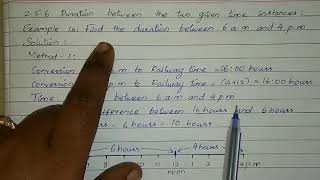 2.5.6 Duration between the two given time instances:
Example 16: Find the duration between 6 a.m and 4 p.m
Solution:
Method - 1:
Conversion p.m to Railway time = 06:00 hours
Conversion p.m to Railway time = (4+12) = 16:00 hours
Time between 6 a.m and 4 p.m
difference between 16 hours and 6 hours
- 6 hours = 10 hours
6 hours 4 hours
8 9 10 11 12 1 2 3 4 p.m
noon